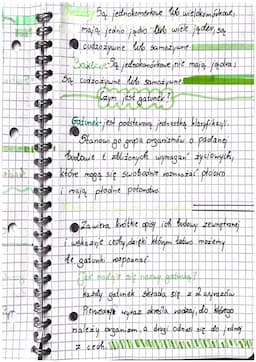 Protisty Są jednokomórkowe lub wielokomórkowe,
mają jedno jądro lub wiele jąder, są
cudzożywne lub samożywne.
Bakterie Są jednokomórkowe nie mają jądra i
Są cudzożywne lub samożywne
Czym jest gatunek?
Gatunek- jest podstawową jednostką klasyfikacji.
Stanowi go grupa organizmów o podanej
budowie i zbliżonych wymagań życiowych,
które mogą się swobodnie rozmnażać płciowo
i mają płodne potomstwo.
Zawiera krótkie opisy ich budowy zewnętrznej
i wskazuje cechy dzięki którym łatwo możemy
te gatunki rozpoznać
Jak nadaje się nazwy gatunku?
każdy gatunek składa się z 2 wyrazów
Pierwszy wyraz określa rodzaj, do którego
należy organizm, a drugi odnosi się do jednej
z cech.